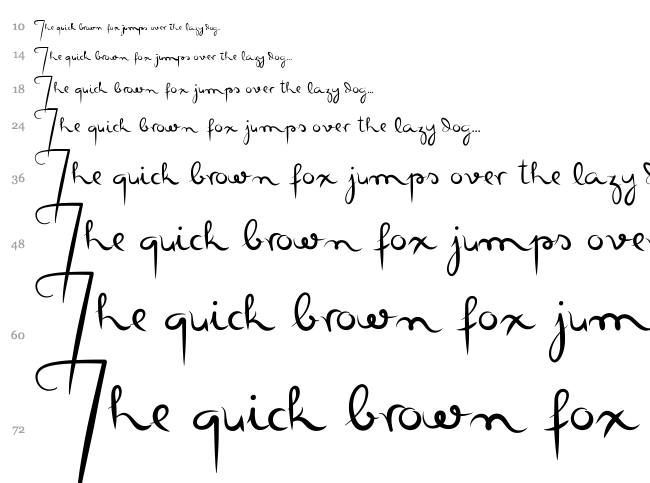 10 The quick brown fox jumps over the lazy dog...
14 The quick brown fox jumps over the lazy dog...
18 The quick brown fox jumps over the lazy dog...
24 The quick brown fox jumps over the lazy dog...
36 The quick brown fox jumps over the lazy d
48 The quick brown fox jumps ove
60 The quick brown fox jum
72 The quick brown fox